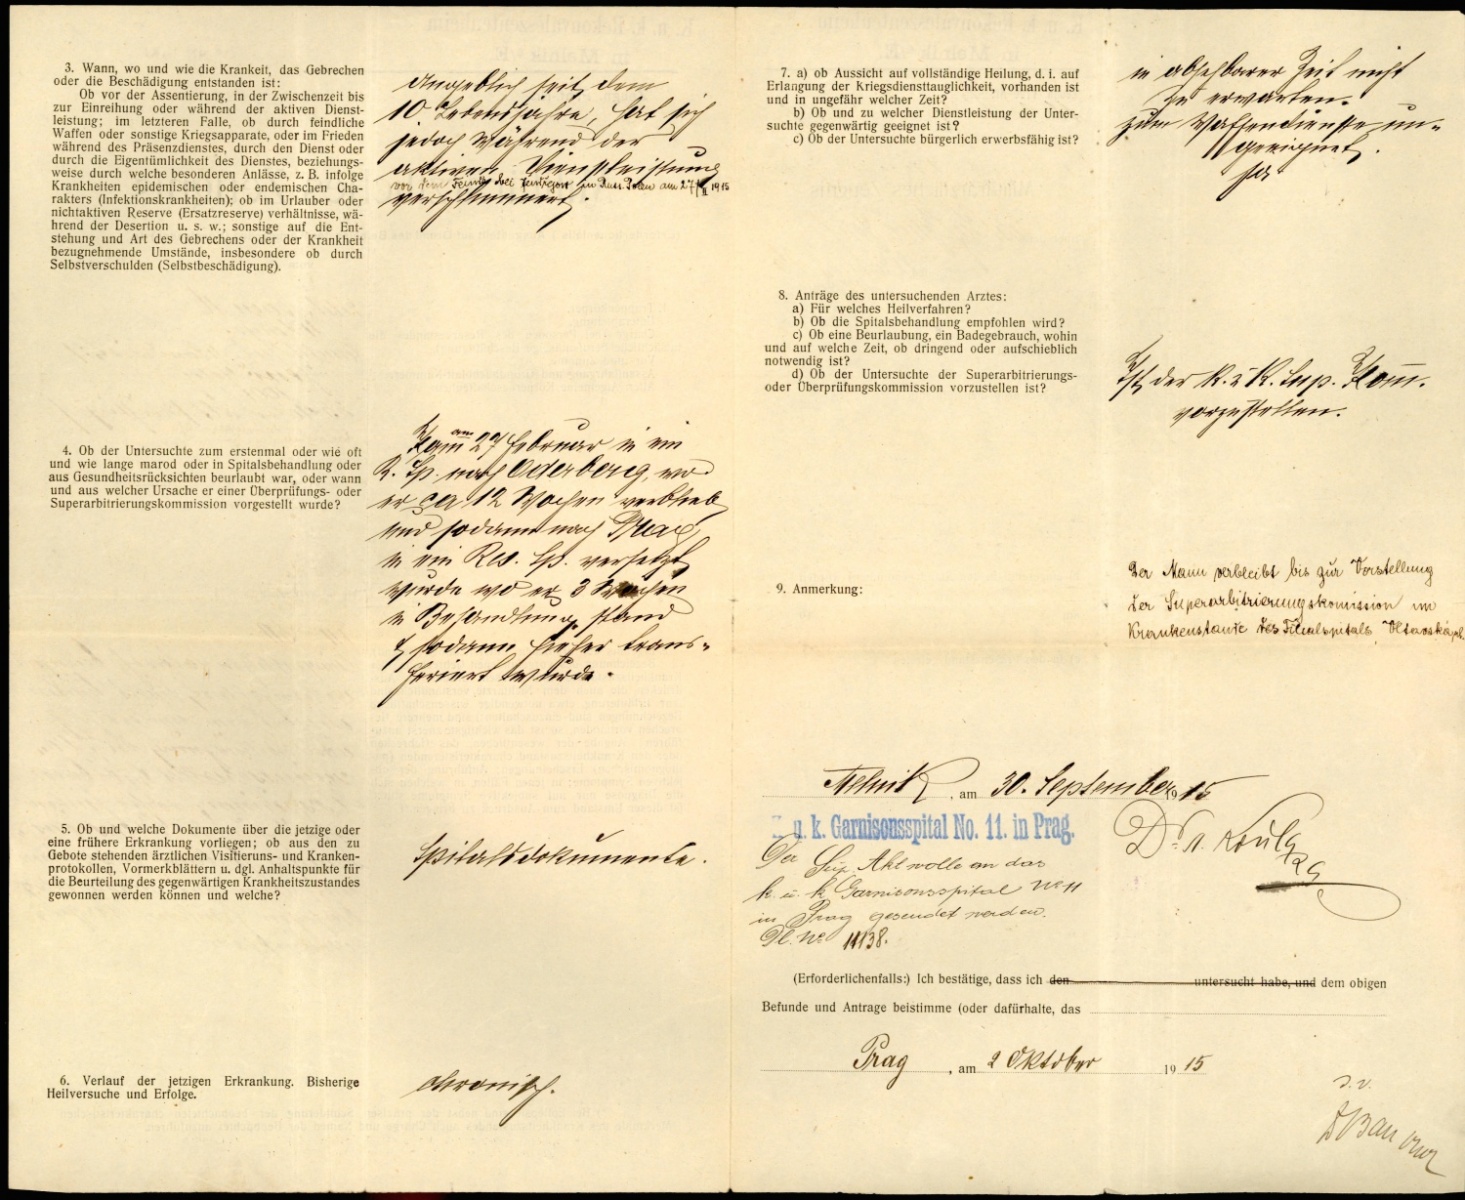 3. Wann, wo und wie die Krankeit, das Gebrechen
oder die Beschädigung entstanden ist:
Ob vor der Assentierung, in der Zwischenzeit bis
zur Einreihung oder während der aktiven Dienst-
leistung; im letzteren Falle, ob durch feindliche
Waffen oder sonstige Kriegsapparate, oder im Frieden
während des Präsenzdienstes, durch den Dienst oder
durch die Eigentümlichkeit des Dienstes, beziehungs-
weise durch welche besonderen Anlässe, z. B. infolge
Krankheiten epidemischen oder endemischen Cha-
rakters (Infektionskrankheiten); ob im Urlauber oder
nichtaktiven Reserve (Ersatzreserve) verhältnisse, wä-
hrend der Desertion u. s. w.; sonstige auf die Ent-
stehung und Art des Gebrechens oder der Krankheit
bezugnehmende Umstände, insbesondere ob durch
Selbstverschulden (Selbstbeschädigung).
Angeblich seit dem
10. Lebensjahre, hat sich
jedoch während der
aktiven Dienstleistung
vor dem Feinde bei in Russ. Polen am 27/II 1915
verschlimmert.
4. Ob der Untersuchte zum erstenmal oder wie oft
und wie lange marod oder in Spitalsbehandlung oder
aus Gesundheitsrücksichten beurlaubt war, oder wann
und aus welcher Ursache er einer Überprüfungs- oder
Superarbitrierungskommission vorgestellt wurde?
Kam am 27 Februar in ein
R. Sp. nach Oderberg, wo
er ca 12 Wochen verblieb
und sodann nach Prag
in ein Res. Sp. versetzt
wurde wo er 3 Wochen
in Behandlung stand
& sodann hieher trans-
feriert wurde.
5. Ob und welche Dokumente über die jetzige oder
eine frühere Erkrankung vorliegen; ob aus den zu
Gebote stehenden ärztlichen Visitieruns- und Kranken-
protokollen, Vormerkblättern u. dgl. Anhaltspunkte für
die Beurteilung des gegenwärtigen Krankheitszustandes
gewonnen werden können und welche?
Spitalsdokumente.
6. Verlauf der jetzigen Erkrankung. Bisherige
Heilversuche und Erfolge.
chronisch.
7. a) ob Aussicht auf vollständige Heilung, d. i. auf
Erlangung der Kriegsdiensttauglichkeit, vorhanden ist
und in ungefähr welcher Zeit?
b) Ob und zu welcher Dienstleistung der Unter-
suchte gegenwärtig geeignet ist?
c) Ob der Untersuchte bürgerlich erwerbsfähig ist?
in absehbarer Zeit nicht
zu erwarten.
zum Waffendienste un-
geeignet.
ja
8. Anträge des untersuchenden Arztes:
a) Für welches Heilverfahren?
b) Ob die Spitalsbehandlung empfohlen wird?
c) Ob eine Beurlaubung, ein Badegebrauch, wohin
und auf welche Zeit, ob dringend oder aufschieblich
notwendig ist?
d) Ob der Untersuchte der Superarbitrierungs-
oder Überprüfungskommission vorzustellen ist?
Ist der K. u K. Sup. Kom̄.
vorzustellen.
9. Anmerkung:
Der Mann verbleibt bis zur Vorstellung
der Superarbitrierungskomission im
Krankenstande des Filialspitals
Melnik, am 30. September 1915
K. u. k. Garnisonsspital No. 11. in Prag.
Der Sup. Akt wolle an das
k. u. k. Garnisonsspital No 11
in Prag gesendet werden.
11138.
(Erforderlichenfalls:) Ich bestätige, dass ich den untersucht habe, und dem obigen
Befunde und Antrage beistimme (oder dafürhalte, das
Prag, am 2 Oktober 1915